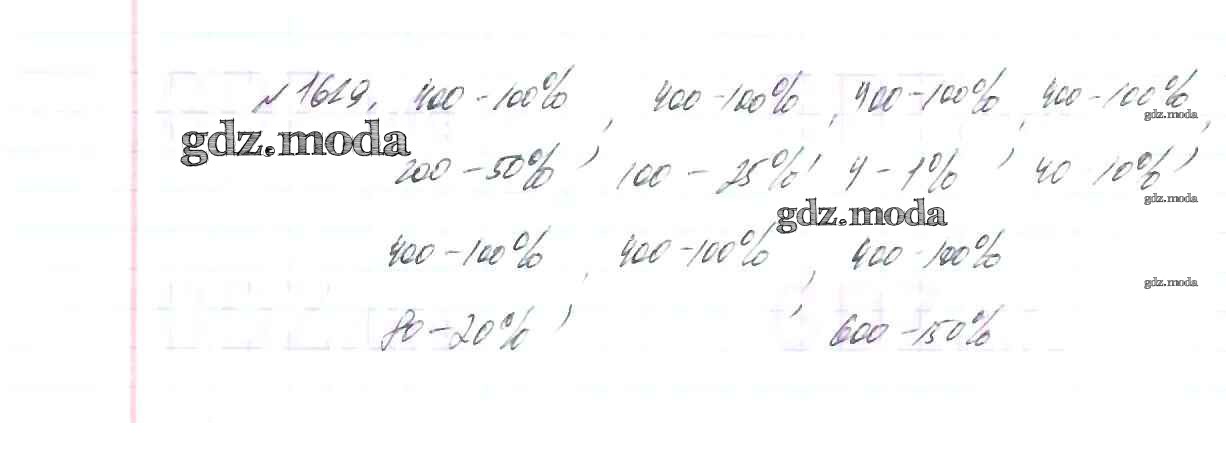 №1629. 400-100% 400-100%, 400-100%, 400-100%,
gdz.moda
gdz.moda
200-50%, 100-25%; 4-1%, 40 10%,
gdz.moda
gdz.moda
400-100%, 400-100%, 400-100%
gdz.moda
80-20%, , 600-150%